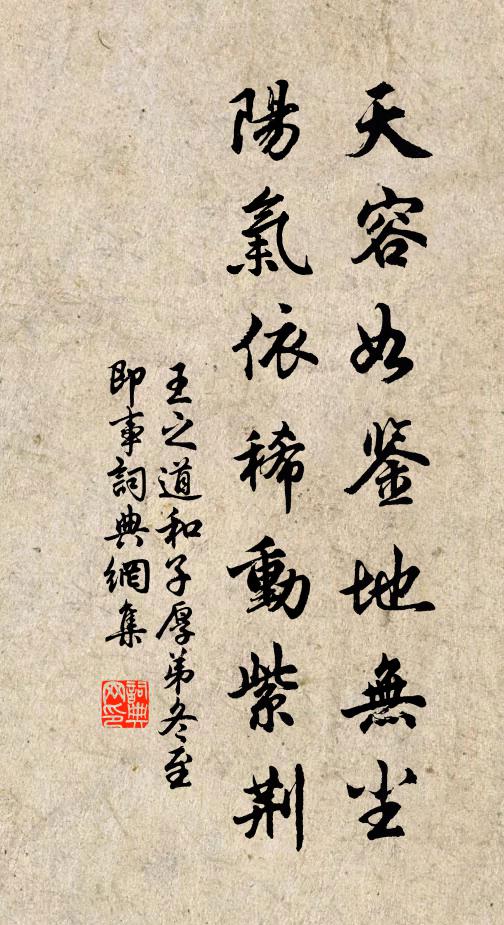 天容如鉴地無尘
陽氣依稀動紫荆
王之道和子厚弟冬至
即事詞典網集
詞典
网印